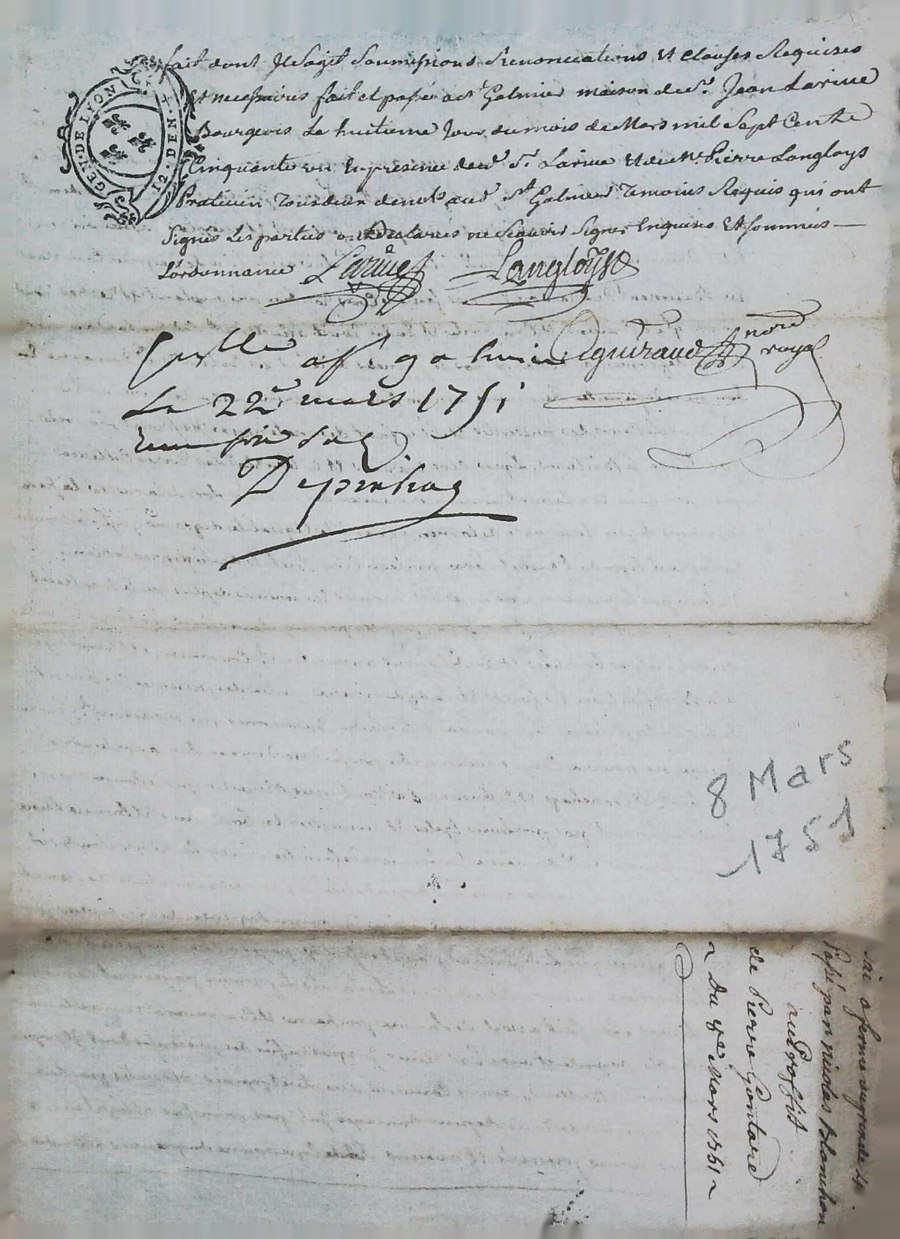 GEN. DE LYON
12. DEN.
fait dont Il Sagit Soumissions Renonciations Et Clauses Requises
Et necessaires fait et passé a St Galmier maison de Sr. Jean Larüe
Bourgeois Le huitieme Jour du mois de Mars mil Sept Cents
Cinquante un En presence dud. Sr. Larüe Et de Me Pierre Langloys
Praticien aud. St Galmier Temoins Requis qui ont
Signés Les parties ont declarés ne Scavoir Signer Enquises Et Sommées
L'ordonnance Larüe Langloys
a St galmier guiraud nore royal
Le 22e mars 1751
8 Mars
1751
passé par nicolas blanchon
au Proffit
de Pierre Gontard
~ Du 8e Mars 1751 ~